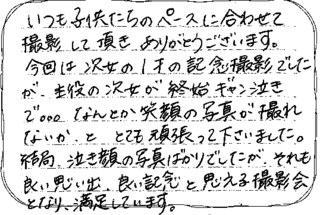 いつも子供たちのペースに合わせて
撮影して頂きありがとうございます。
今回は次女の1才の記念撮影でした
が、主役の次女が終始ギャン泣き
で。。。なんとか笑顔の写真が撮れ
ないか、と とても頑張って下さいました。
結局、泣き顔の写真ばかりでしたが、それも
良い思い出、良い記念と思える撮影会
となり、満足しています。